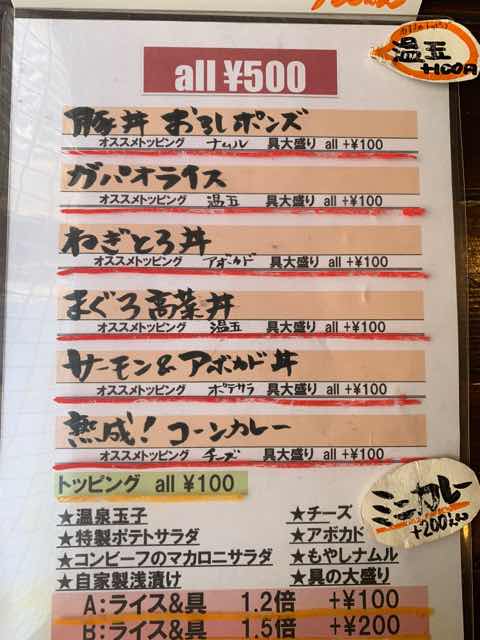 all ¥500
温玉
+100円
豚丼 おろしポンズ
オススメトッピング ナムル 具大盛り all +¥100
ガパオライス
オススメトッピング 温玉 具大盛り all +¥100
ねぎとろ丼
オススメトッピング アボカド 具大盛り all +¥100
まぐろ高菜丼
オススメトッピング 温玉 具大盛り all +¥100
サーモン&アボカド丼
オススメトッピング ポテサラ 具大盛り all +¥100
熟成!コーンカレー
オススメトッピング チーズ 具大盛り all +¥100
トッピング all ¥100
ミニカレー
+200円
★温泉玉子 ★チーズ
★特製ポテトサラダ ★アボカド
★コンビーフのマカロニサラダ ★もやしナムル
★自家製浅漬け ★具の大盛り
A:ライス&具 1.2倍 +¥100
B:ライス&具 1.5倍 +¥200